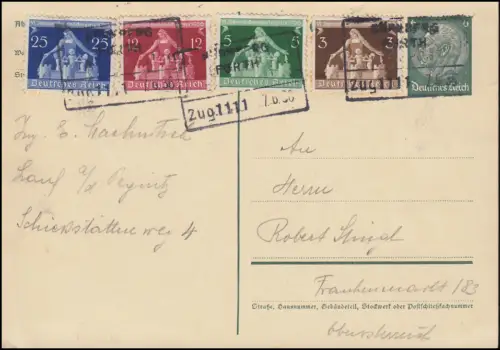 25 25
Deutsches Reich
12 12
Deutsches Reich
5 5
Deutsches Reich
3 3
Deutsches Reich
6
Deutsches Reich
NÜRNBERG
FÜRTH
Zug 1111 7.6.36
Zug 1111
Ing. E.
Lauf a/d Pegnitz
Schiesstätten weg 4
An
Herrn
Robert Stingl
Frankenmarkt 183
Straße, Hausnummer, Gebäudeteil, Stockwerk oder Postschließfachnummer
Oberösterreich